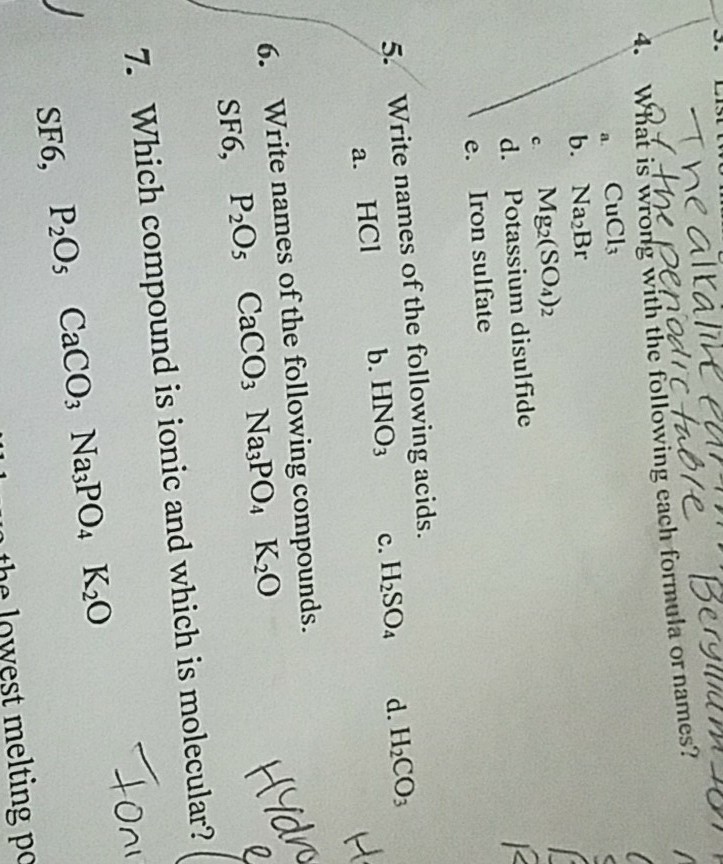 3.
The alkaline
of the periodic table Beryllium
4. What is wrong with the following each formula or names?
a. CuCl₃
b. Na₂Br
c. Mg₂(SO₄)₂
d. Potassium disulfide
e. Iron sulfate
5. Write names of the following acids.
a. HCl b. HNO₃ c. H₂SO₄ d. H₂CO₃
6. Write names of the following compounds.
SF6, P₂O₅ CaCO₃ Na₃PO₄ K₂O
Hydro
7. Which compound is ionic and which is molecular?
Ioni
SF6, P₂O₅ CaCO₃ Na₃PO₄ K₂O
the lowest melting po